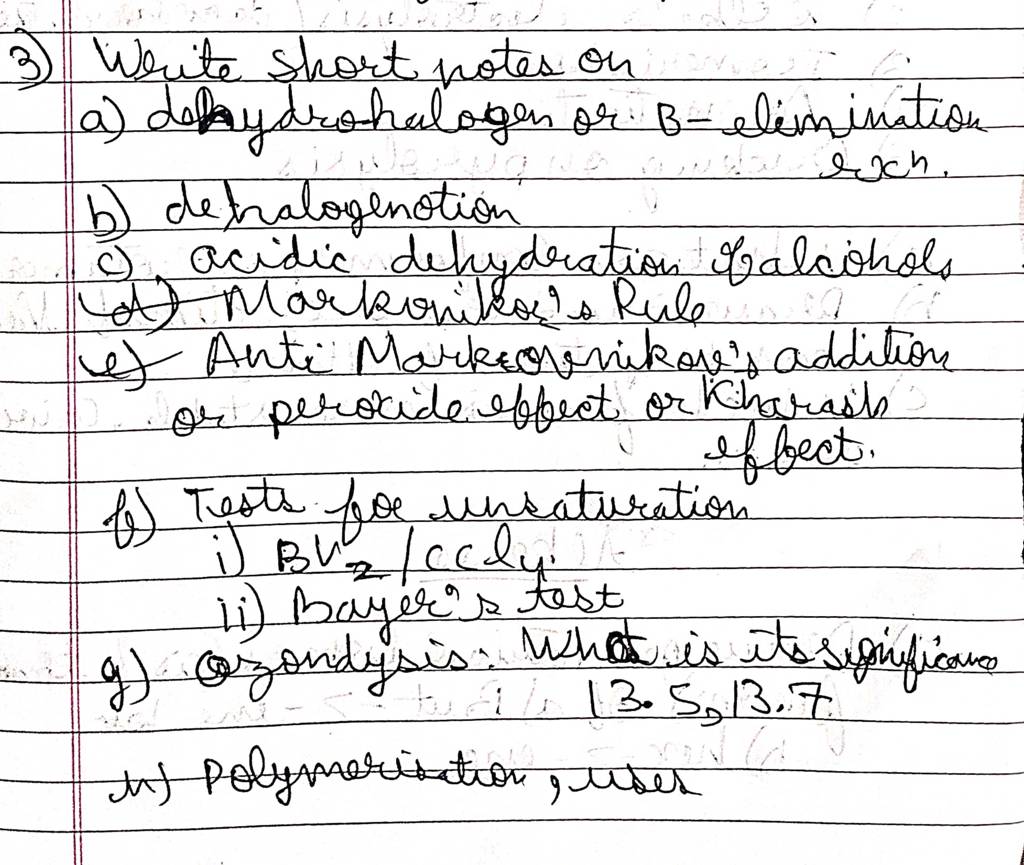 3) Write short notes on
a) dehydrohalogen or B-elimination
rxn.
b) dehalogenation
c) acidic dehydration of alcohols
d) Markonikov's Rule
e) Anti Markovnikov's addition
or peroxide effect or Kharash
effect.
f) Tests for unsaturation
i) Br2/CCl4.
ii) Bayer's test
g) Ozonolysis. What is its significance
13.5, 13.7
h) Polymerisation, uses